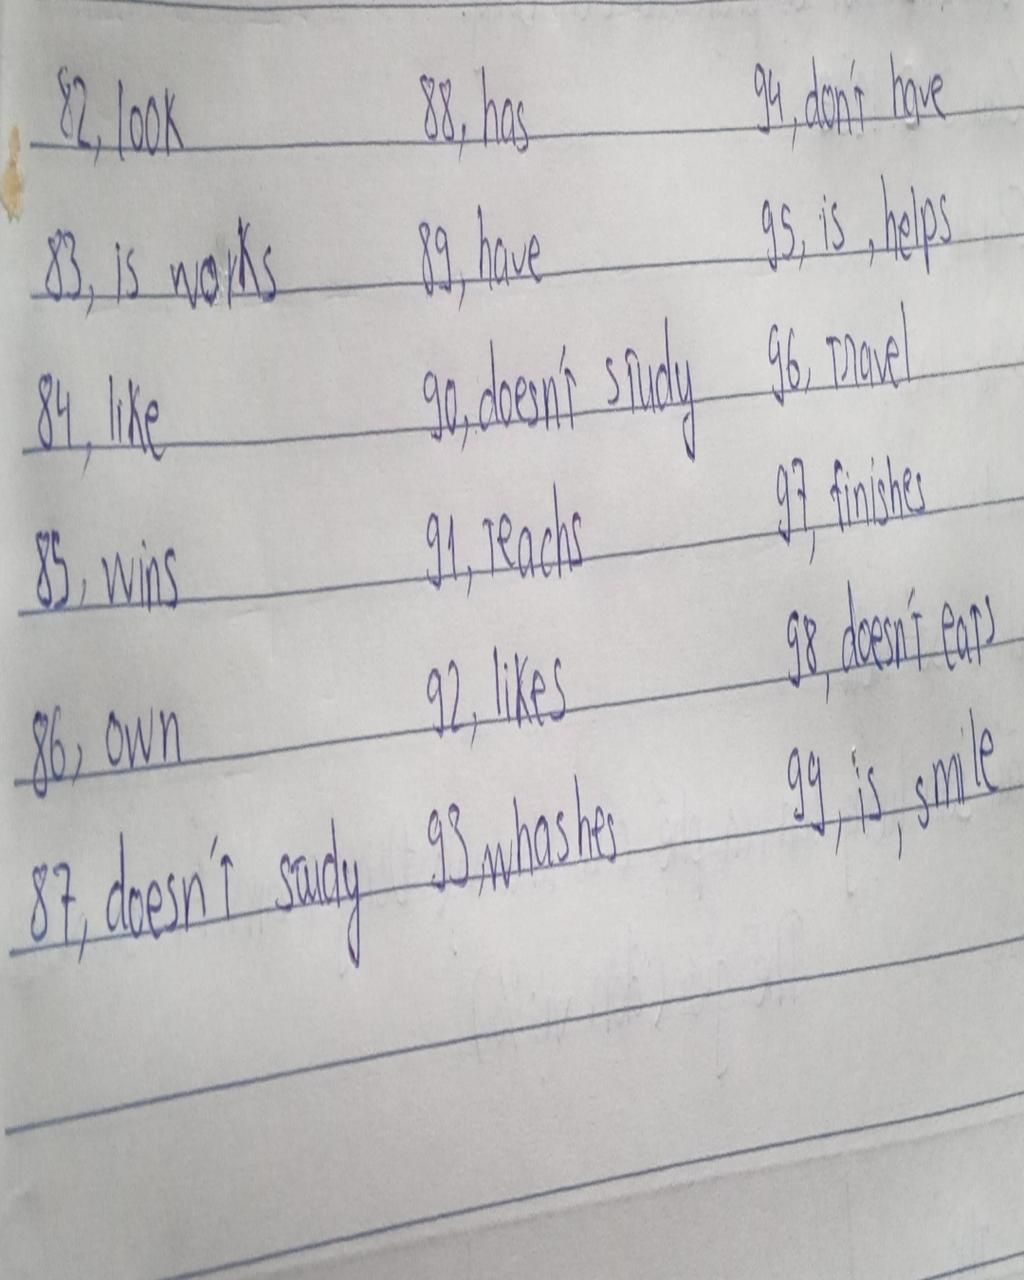 82, look
83, is works
84, like
85, wins
86, own
87, doesn't study
88, has
89, have
90, doesn't study
91, teachs
92, likes
93, whashes
94, don't have
95, is, helps
96, travel
97, finishes
98, doesn't eats
99, is, smile